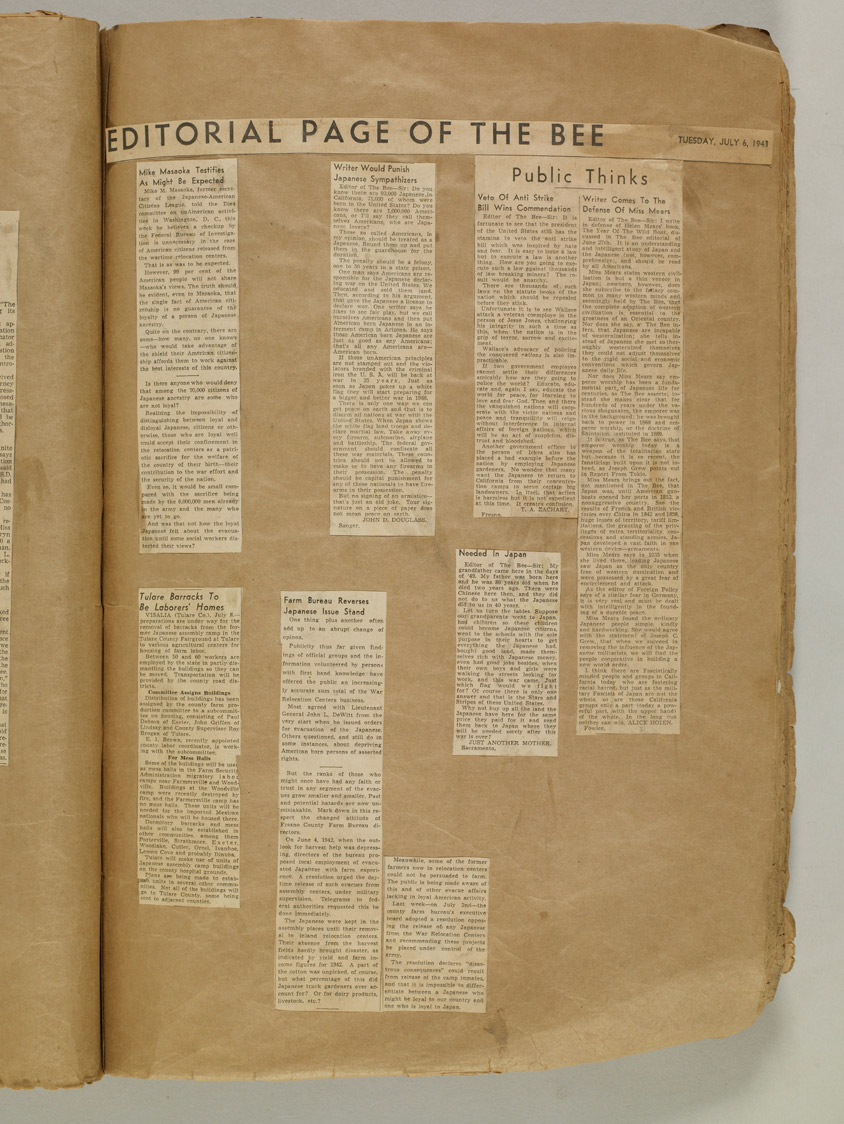 EDITORIAL PAGE OF THE BEE
TUESDAY, JULY 6, 1943
Mike Masaoka Testifies
As Might Be Expected
Mike M. Masaoka, former secre-
tary of the Japanese-American
Citizens League, told the Dies
committee on unAmerican activi-
ties in Washington, D. C., this
week he believes a checkup by
the Federal Bureau of Investiga-
tion is unnecessary in the case
of American citizens released from
the wartime relocation centers.
That is as was to be expected.
However, 99 per cent of the
American people will not share
Masaoka's views. The truth should
be evident, even to Masaoka, that
the single fact of American citi-
zenship is no guarantee of the
loyalty of a person of Japanese
ancestry.
Quite on the contrary, there are
some—how many, no one knows
—who would take advantage of
the shield their American citizen-
ship affords them to work against
the best interests of this country.
Is there anyone who would deny
that among the 70,000 citizens of
Japanese ancestry are some who
are not loyal?
Realizing the impossibility of
distinguishing between loyal and
disloyal Japanese, citizens or oth-
erwise, those who are loyal well
could accept their confinement in
the relocation centers as a patri-
otic sacrifice for the welfare of
the country of their birth—their
contribution to the war effort and
the security of the nation.
Even so, it would be small com-
pared with the sacrifice being
made by the 8,000,000 men already
in the army and the many who
are yet to go.
And was that not how the loyal
Japanese felt about the evacua-
tion until some social workers dis-
torted their views?
Tulare Barracks To
Be Laborers' Homes
VISALIA (Tulare Co.), July 8.—
preparations are under way for the
removal of barracks from the for-
mer Japanese assembly camp in the
Tulare County Fairground at Tulare
to various agricultural centers for
housing of farm labor.
Between 50 and 60 workers are
employed by the state in partly dis-
mantling the buildings so they can
be moved. Transportation will be
provided by the county road dis-
tricts.
Committee Assigns Buildings
Distribution of buildings has been
assigned by the county farm pro-
duction committee to a subcommit-
tee on housing, consisting of Paul
Dobson of Exeter, John Guthrie of
Lindsay and County Supervisor Ray
Brogen of Tulare.
E. J. Brown, recently appointed
county labor coordinator, is work-
ing with the subcommittee.
For Mess Halls
Some of the buildings will be used
as mess halls in the Farm Security
Administration migratory labor
camps near Farmersville and Wood-
ville. Buildings at the Woodville
camp were recently destroyed by
fire, and the Farmersville camp has
no mess halls. These units will be
needed for the imported Mexican
nationals who will be housed there.
Dormitory barracks and mess
halls will also be established in
other communities, among them
Porterville, Strathmore, Exeter,
Woodlake, Cutler, Orosi, Ivanhoe,
Lemon Cove and probably Dinuba.
Tulare will make use of units of
Japanese assembly camp buildings
on the county hospital grounds.
Plans are being made to estab-
lish units in several other commu-
nities. Not all of the buildings will
go to Tulare County, some being
sent to adjacent counties.
Writer Would Punish
Japanese Sympathizers
Editor of The Bee—Sir: Do you
know there are 93,000 Japanese in
California, 71,000 of whom were
born in the United States? Do you
know there are 1,000,000 Ameri-
cans, or I'll say they call them-
selves Americans, who are Japa-
nese lovers?
These so called Americans, in
my opinion, should be treated as a
Japanese. Round them up and put
them in the guardhouse for the
duration.
The penalty should be a felony,
one to 50 years in a state prison.
One man says Americans are re-
sponsible for the Japanese declar-
ing war on the United States. We
educated and sold them land.
Then, according to his argument,
that gave the Japanese a license to
declare war. One writer says he
likes to see fair play, but we call
ourselves Americans and then put
American born Japanese in an in-
ternment camp in Arizona. He says
those American born Japanese are
just as good as any Americans;
that's all any Americans are—
American born.
If those unAmerican principles
are not stamped out and the vio-
lators branded with the criminal
iron the U. S. A. will be back at
war in 25 years. Just as
soon as Japan pokes up a white
flag they will start preparing for
a bigger and better war in 1968.
There is only one way we can
get peace on earth and that is to
disarm all nations at war with the
United States. When Japan shows
the white flag land troops and de-
clare martial law. Take away ev-
ery firearm, submarine, airplane
and battleship. The federal gov-
ernment should confiscate all
these war materials. These coun-
tries should not be allowed to
make or to have any firearms in
their possession. The penalty
should be capital punishment for
any of those nationals to have fire-
arms in their possession.
But no signing of an armistice—
that's just an old joke. Your sig-
nature on a piece of paper does
not mean peace on earth.
JOHN D. DOUGLASS.
Sanger.
Farm Bureau Reverses
Japanese Issue Stand
One thing plus another often
add up to an abrupt change of
opinon.
Publicity thus far given find-
ings of official groups and the in-
formation volunteered by persons
with first hand knowledge have
offered the public an increasing-
ly accurate sum total of the War
Relocation Centers business.
Most agreed with Lieutenant
General John L. DeWitt from the
very start when he issued orders
for evacuation of the Japanese.
Others questioned, and still do in
some instances, about depriving
American born persons of asserted
rights.
But the ranks of those who
might once have had any faith or
trust in any segment of the evac-
uees grow smaller and smaller. Past
and potential hazards are now un-
mistakable. Mark down in this re-
spect the changed attitude of
Fresno County Farm Bureau di-
rectors.
On June 4, 1942, when the out-
look for harvest help was depress-
ing, directors of the bureau pro-
posed local employment of evacu-
ated Japanese with farm experi-
ence. A resolution urged the day-
time release of such evacues from
assembly centers, under military
supervision. Telegrams to fed-
eral authorities requested this be
done immediately.
The Japanese were kept in the
assembly places until their remov-
al to inland relocation centers.
Their absence from the harvest
fields hardly brought disaster, as
indicated by yield and farm in-
come figures for 1942. A part of
the cotton was unpicked, of course,
but what percentage of this did
Japanese truck gardeners ever ac-
count for? Or for dairy products,
livestock, etc.?
Meanwhile, some of the former
farmers now in relocation centers
could not be persuaded to farm.
The public is being made aware of
this and of other evacue affairs
lacking in loyal American activity.
Last week—on July 2nd—the
county farm bureau's executive
board adopted a resolution oppos-
ing the release of any Japanese
from the War Relocation Centers
and recommending these projects
be placed under control of the
army.
The resolution declares "disas-
trous consequences" could result
from release of the camp inmates,
and that it is impossible to differ-
entiate between a Japanese who
might be loyal to our country and
one who is loyal to Japan.
Public Thinks
Veto Of Anti Strike
Bill Wins Commendation
Editor of The Bee—Sir: It is
fortunate to see that the president
of the United States still has the
stamina to veto the anti strike
bill which was inspired by hate
and fear. It is easy to issue a law
but to execute a law is another
thing. How are you going to exe-
cute such a law against thousands
of law breaking miners? The re-
sult would be anarchy.
There are thousands of such
laws on the statute books of the
nation which should be repealed
before they stick.
Unfortunate it is to see Wallace
attack a veteran coemploye in the
person of Jesse Jones, challenging
his integrity in such a time as
this, when the nation is in the
grip of terror, sorrow and excite-
ment.
Wallace's advocacy of policing
the conquered nations is also im-
practicable.
If two government employes
cannot settle their differences
amicably how are they going to
police the world? Educate, edu-
cate and, again I say, educate the
world for peace, for learning to
love and fear God. Then and there
the vanquished nations will coop-
erate with the victor nations and
peace and tranquility will reign
without interference in internal
affairs of foreign nations, which
will be an act of suspicion, dis-
trust and bloodshed.
Another government officer in
the person of Ickes also has
placed a bad example before the
nation by employing Japanese
gardeners. No wonder that many
want the Japanese to return to
California from their concentra-
tion camps to serve certain big
landowners. In itself, that action
is harmless but it is not expedient
at this time. It creates confusion.
T. A. ZACHARY.
Fresno.
Needed In Japan
Editor of The Bee—Sir: My
grandfather came here in the days
of '49. My father was born here
and he was 80 years old when he
died two years ago. There were
Chinese here then, and they did
not do to us what the Japanese
did to us in 40 years.
Let us turn the tables. Suppose
our grandparents went to Japan,
had children so these children
could become Japanese citizens,
went to the schools with the sole
purpose in their hearts to get
everything the Japanese had,
bought good land, made them-
selves rich with Japanese money,
even had good jobs besides, when
their own boys and girls were
walking the streets looking for
work, and this war came. Just
which flag would we fight
for? Of course there is only one
answer and that is the Stars and
Stripes of these United States.
Why not buy up all the land the
Japanese have here for the same
price they paid for it and send
them back to Japan where they
will be needed sorely after this
war is over?
JUST ANOTHER MOTHER.
Sacramento.
Writer Comes To The
Defense Of Miss Mears
Editor of The Bee—Sir: I write
in defense of Helen Mears' book,
The Year Of The Wild Boar, dis-
cussed in The Bee editorial of
June 27th. It is an understanding
and intelligent study of Japan and
the Japanese (not, however, com-
prehensive), and should be read
by all Americans.
Miss Mears states western civili-
zation is but a thin veneer in
Japan; nowhere, however, does
she subscribe to the fallacy com-
mon to many western minds and
seemingly held by The Bee, that
the complete adoption of western
civilization is essential to the
greatness of an Oriental country.
Nor does she say, as The Bee in-
fers, that Japanese are incapable
of westernization; she tells in-
stead of Japanese she met so thor-
oughly westernized themselves
they could not adjust themselves
to the rigid social and economic
conventions which govern Jap-
anese daily life.
Nor does Miss Mears say em-
peror worship has been a funda-
mental part of Japanese life for
centuries, as The Bee asserts; in-
stead she makes clear that for
hundreds of years under the va-
rious shogunates, the emperor was
in the background; he was brought
back to power in 1868 and em-
peror worship, or the doctrine of
Shintoism, instituted in 1889.
It is true, as The Bee says, that
emperor worship today is a
weapon of the totalitarian state
but, because it is so recent, the
fanaticism built upon it is not in-
bred, as Joseph Grew points out
in Report From Tokio.
Miss Mears brings out the fact,
not mentioned in The Bee, that
Japan was, until American gun-
boats opened her ports in 1853, a
nonaggressive country. See the
results of French and British vic-
tories over China in 1842 and 1858,
huge losses of territory, tariff lim-
itations, the granting of the privi-
leges of extra territoriality con-
cessions and standing armies, Ja-
pan developed a vast faith in one
western device—armaments.
Miss Mears says in 1935 when
she lived there, leading Japanese
saw Japan as the only country
free of western domination and
were possessed by a great fear of
encirclement and attack.
As the editor of Foreign Policy
says of a similar fear in Germany,
it is very real, and must be dealt
with intelligently in the found-
ing of a durable peace.
Miss Mears found the ordinary
Japanese people simple, kindly
and hardworking. She would agree
with the statement of Joseph C.
Grew, that when we succeed in
removing the influence of the Jap-
anese militarists, we will find the
people cooperative in building a
new world order.
I think there are Fascistically
minded people and groups in Cali-
fornia today who are fostering
racial hatred, but just as the mili-
tary Fascists of Japan are not the
whole, so are these California
groups only a part (today a pow-
erful part, with the upper hand)
of the whole. In the long run
neither can win. ALICE HOIEN.
Fowler.